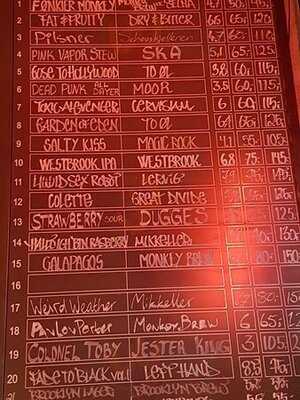 1 FUNKIER MONKEY
2 FAT & FRUITY DRY & BITTER 6.6 65,- 125
3 Pilsner Schouskjelleren
4 PINK VAPOR STEW SKA 5.1 65 125
5 GOSE TO HOLLYWOOD TO ØL 3.8 60,- 115
6 DEAD PUNK MOOR 3.5 60 115
7 CERVISIAM 6 60,- 115
8 GARDEN OF EDEN TO ØL 6.4 65
9 SALTY KISS MAGIC ROCK 4.1 55 105
10 WESTBROOK IPA WESTBROOK 6.8 75,- 145
11 LIQUID SEX ROBOT LERVIG
12 COLETTE GREAT DIVIDE
13 STRAWBERRY SOUR DUGGES 125
14 RASPBERRY MIKKELLER
15 GALAPAGOS MONKEY BREW 150
16
17 Weird Weather Mikkeller 80,- 15
18 Pavlov Porter Monkey Brew 6 65,- 12
19 COLONEL TOBY JESTER KING 3 105,- 2
20 FADE TO BLACK VOL. 1 LEFT HAND 8.5
BROOKLYN LAGER BROOKLYN BREW